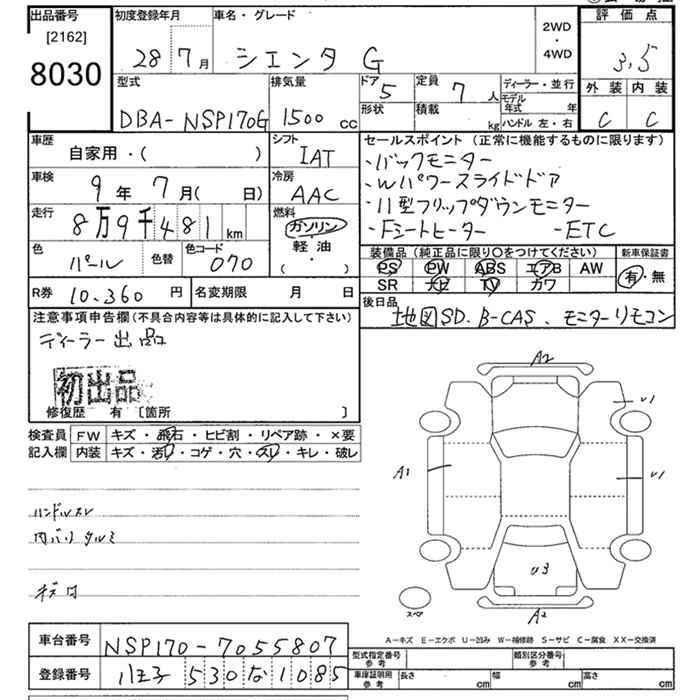 出品番号
[2162]
8030
初度登録年月
28 7月
車名・グレード
シエンタ G
2WD
・
4WD
評価点
3.5
外装 内装
C C
型式
DBA-NSP170G
排気量
1500 cc
ドア
5
定員
7人
形状
積載
kg
ディーラー・並行
モデル年式 年
ハンドル 左・右
車歴
自家用・( )
シフト
IAT
車検
9年7月( 日)
冷房
AAC
走行
8万9千481km
燃料
ガソリン
・
軽油
・
( )
色
パール
色替
色コード
070
R券 10.360円
名変期限 月 日
セールスポイント (正常に機能するものに限ります)
・バックモニター
・Wパワースライドドア
・11型フリップダウンモニター
・Fシートヒーター -ETC
装備品 (純正品に限り○をつけてください)
PS PW ABS エアB AW
SR ナビ TV カワ
新車保証書
有・無
後日品
地図SD. B-CAS、モニターリモコン
注意事項申告欄(不具合内容等は具体的に記入して下さい)
ディーラー出品
初出品
修復歴 有 〔箇所 〕
検査員
記入欄
FW キズ・飛石・ヒビ割・リペア跡・×要
内装 キズ・汚レ・コゲ・穴・スレ・キレ・破レ
ハンドルスレ
内バリタルミ
A2
U1
A1
U1
U3
A2
スペア
A－キズ E－エクボ U－凹み W－補修跡 S－サビ C－腐食 XX－交換済
車台番号
NSP170-7055807
登録番号
八王子 530 な 1085
型式指定番号
参考
類別区分番号
参考
車庫証明用
参考
長さ cm
幅 cm
高さ cm